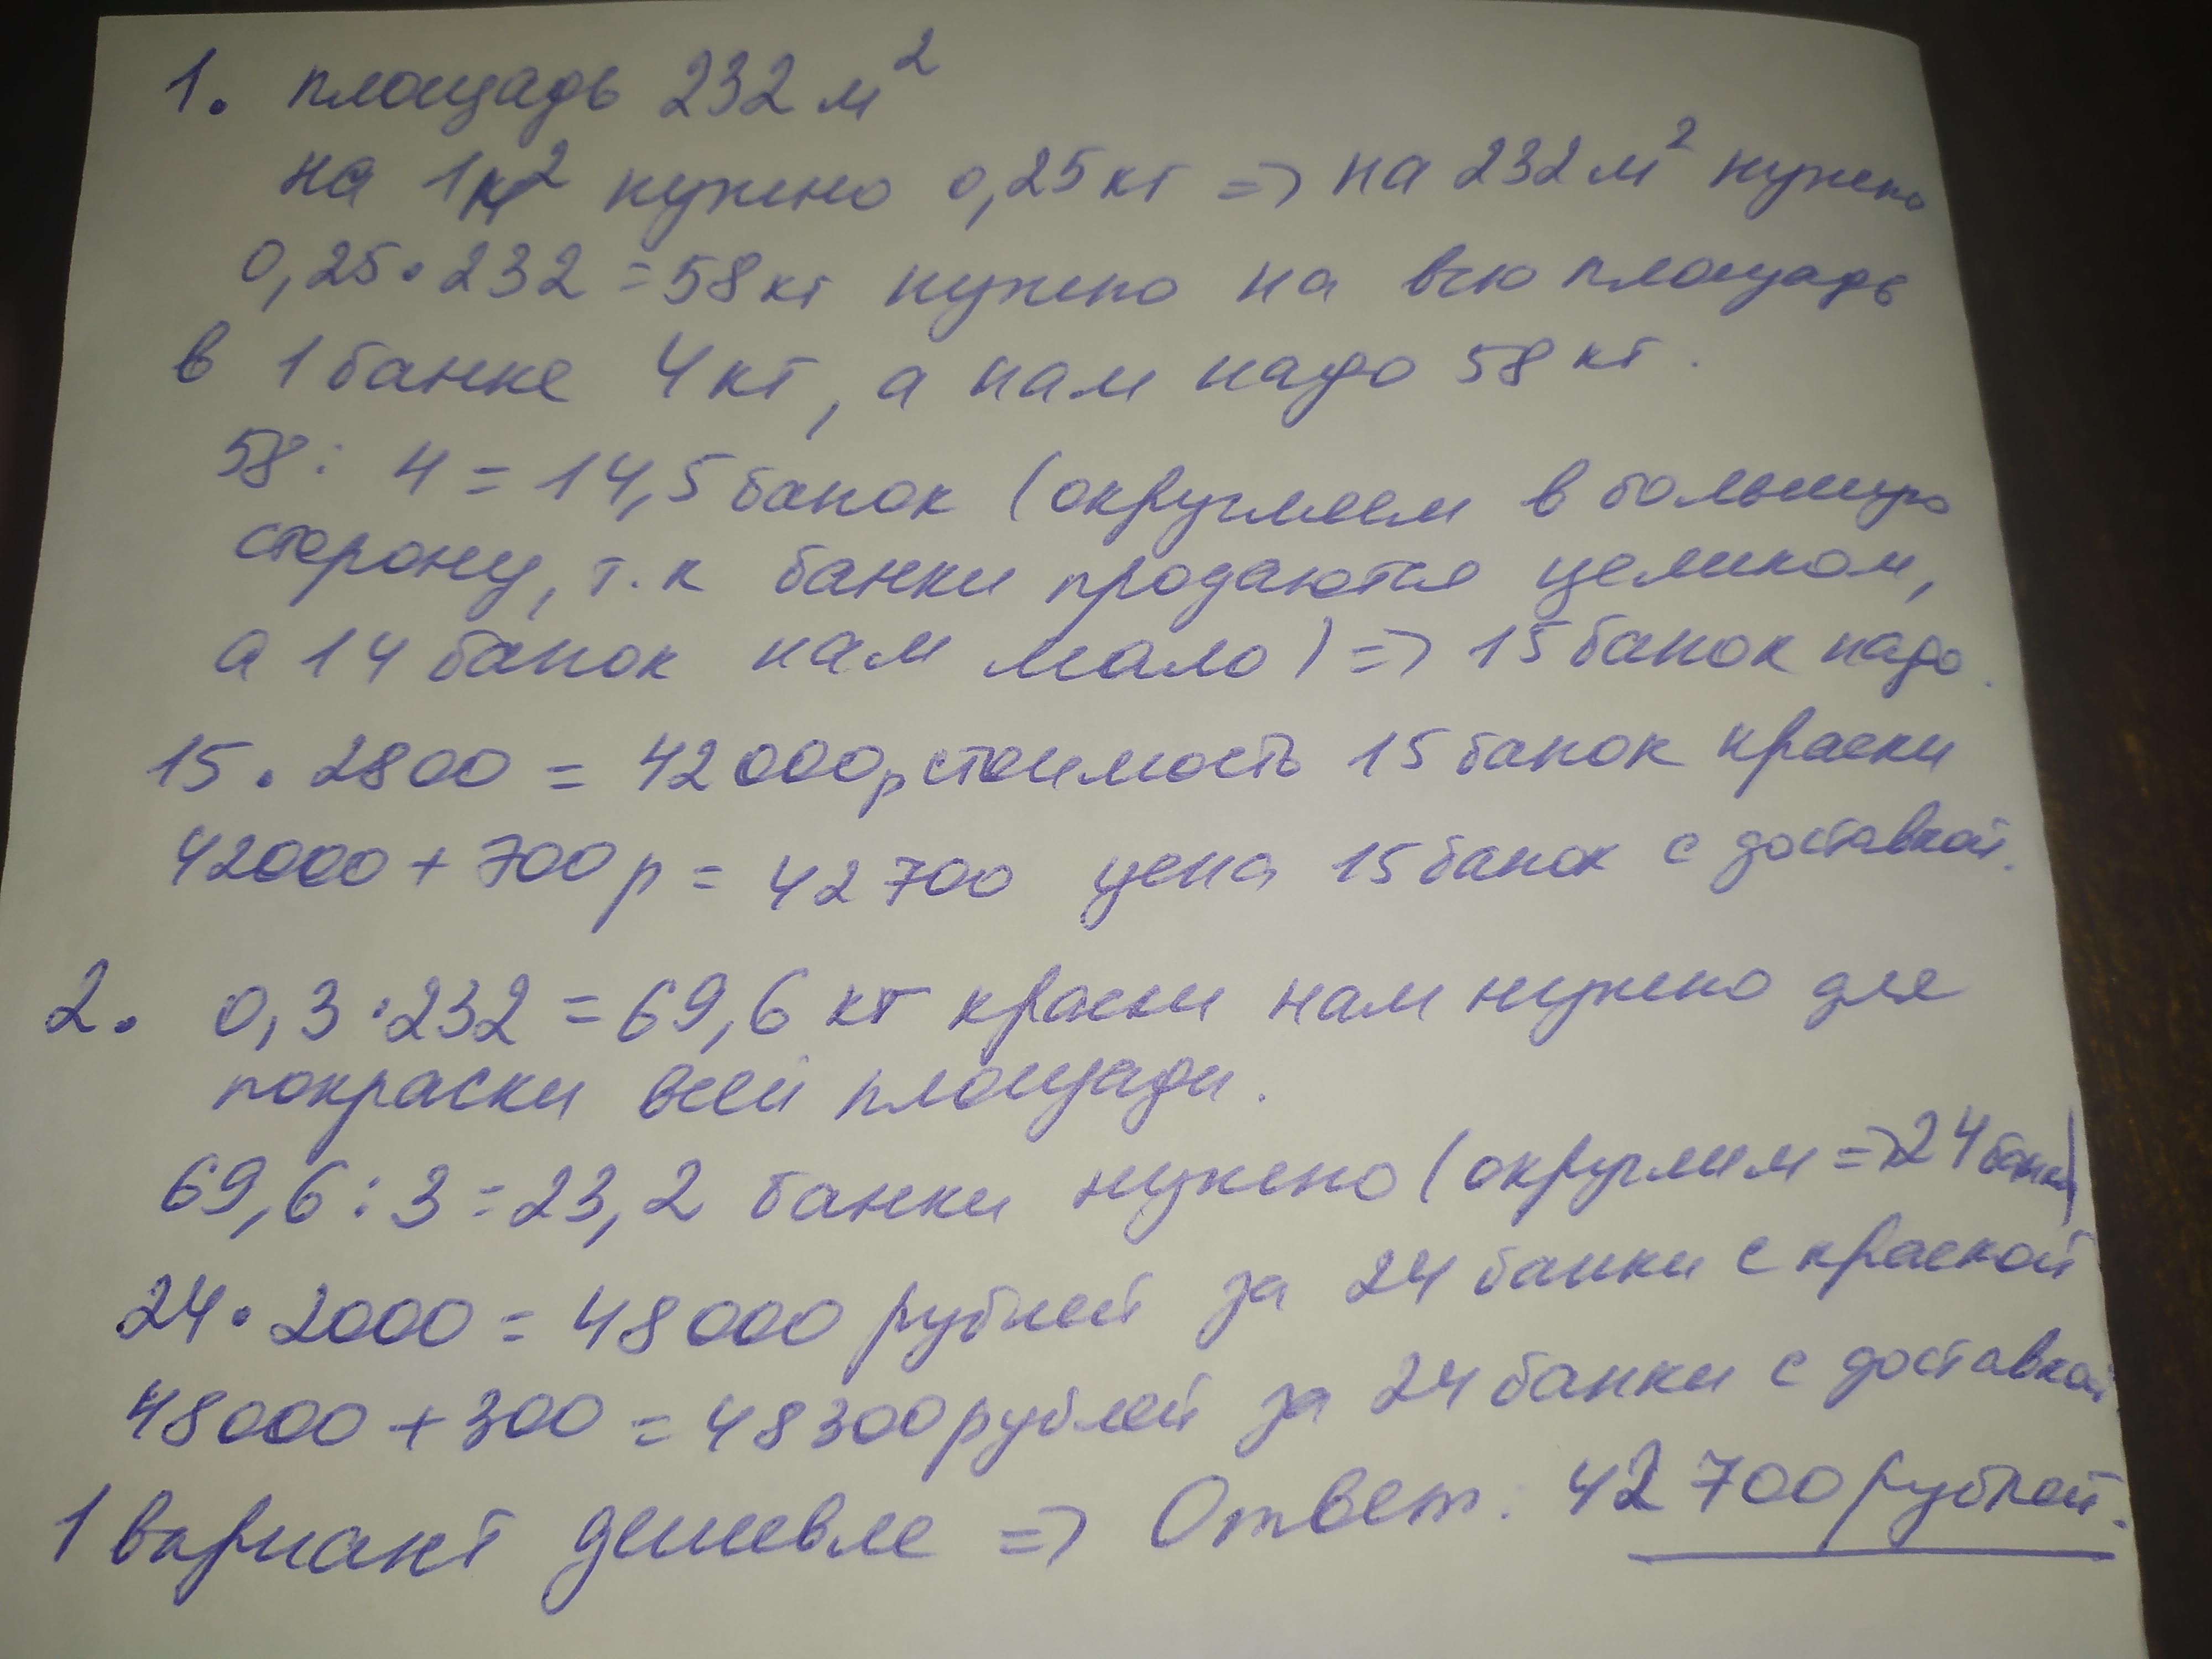 1. площадь 232 м²
на 1м² нужно 0,25кг => на 232 м² нужно
0,25•232 = 58кг нужно на всю площадь
в 1 банке 4кг, а нам надо 58 кг.
58 : 4 = 14,5 банок (округляем в большую
сторону, т.к банки продаются целиком,
а 14 банок нам мало) => 15 банок надо.
15 • 2800 = 42000р стоимость 15 банок краски
42000 + 700р = 42700 цена 15 банок с доставкой.
2. 0,3 • 232 = 69,6 кг краски нам нужно для
покраски всей площади.
69,6 : 3 = 23,2 банки нужно (округлим => 24 банки)
24 • 2000 = 48000 рублей за 24 банки с краской
48000 + 300 = 48300 рублей за 24 банки с доставкой
1 вариант дешевле => Ответ: 42 700 рублей.